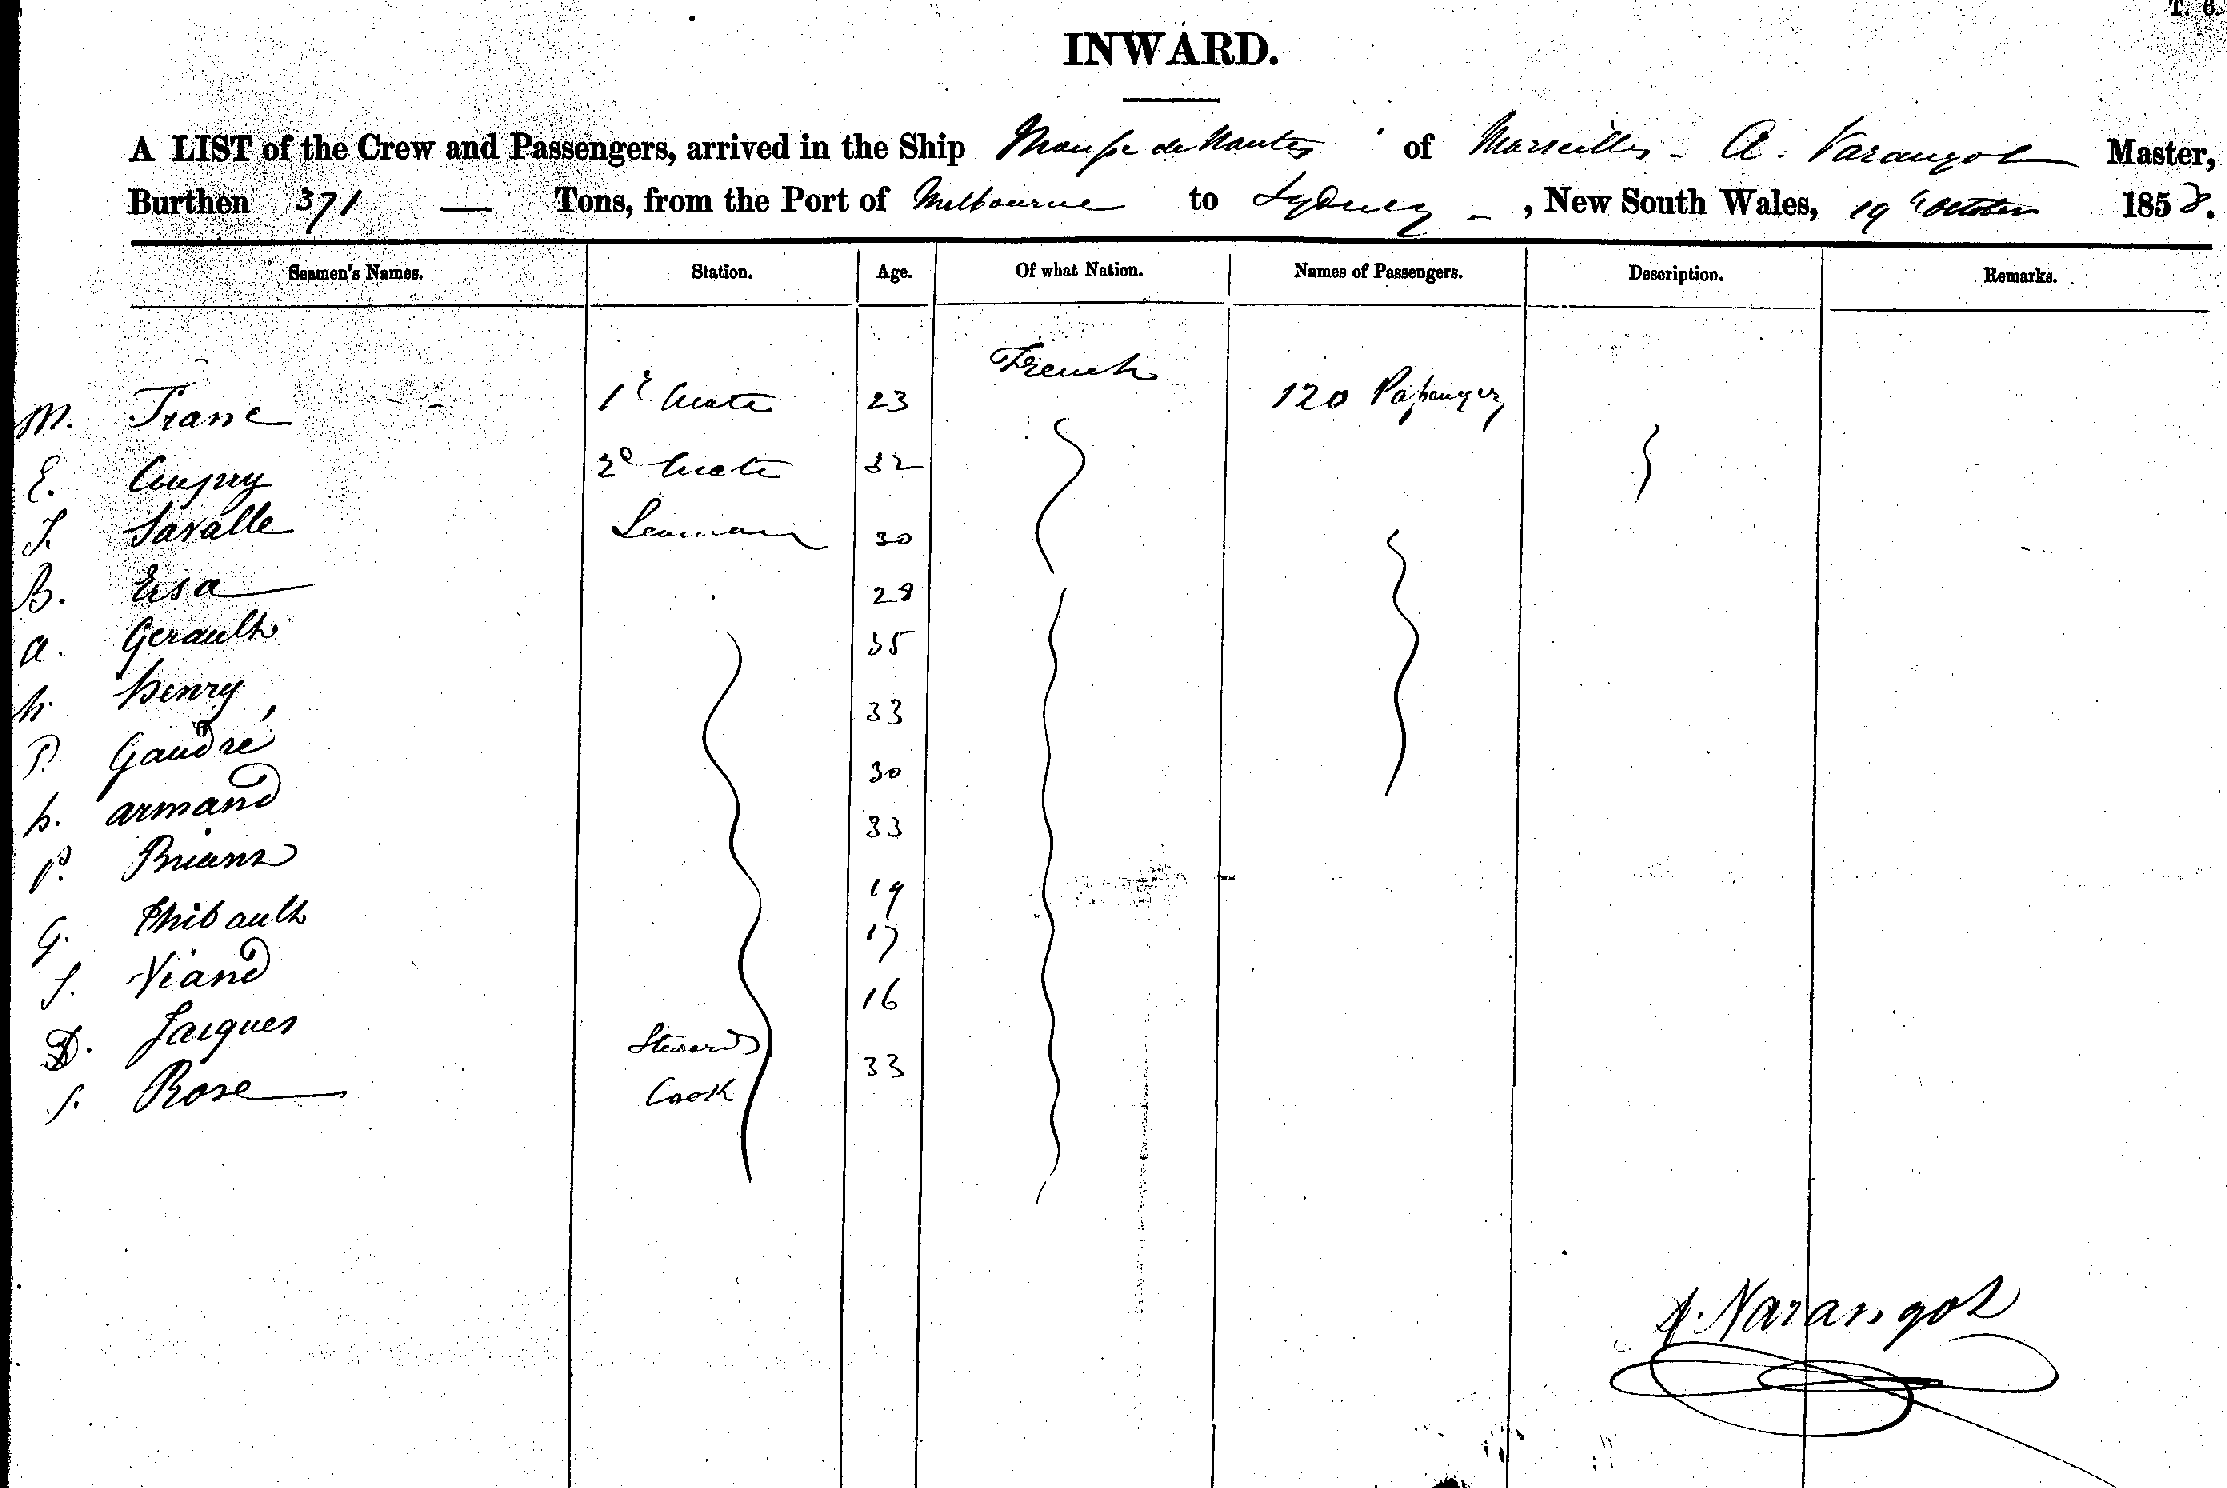 T. 6.
INWARD.
A LIST of the Crew and Passengers, arrived in the Ship de Nantes of Marseilles - A. Varangot Master,
Burthen 371 — Tons, from the Port of Melbourne to Sydney - , New South Wales, 19 October 1858.
Seamen's Names. Station. Age. Of what Nation. Names of Passengers. Description. Remarks.
French
M. Franc 1r Mate 23 120 Passengers
E. 2d Mate 32
Savalle Seaman 30
B. 28
A. Gerault 35
h. henry 33
P. Gaudré 30
h. armand 33
P. Briant 19
G. Thibault 17
J. Viand 16
D. Jacques Steward 33
J. Rose Cook
A. Varangot